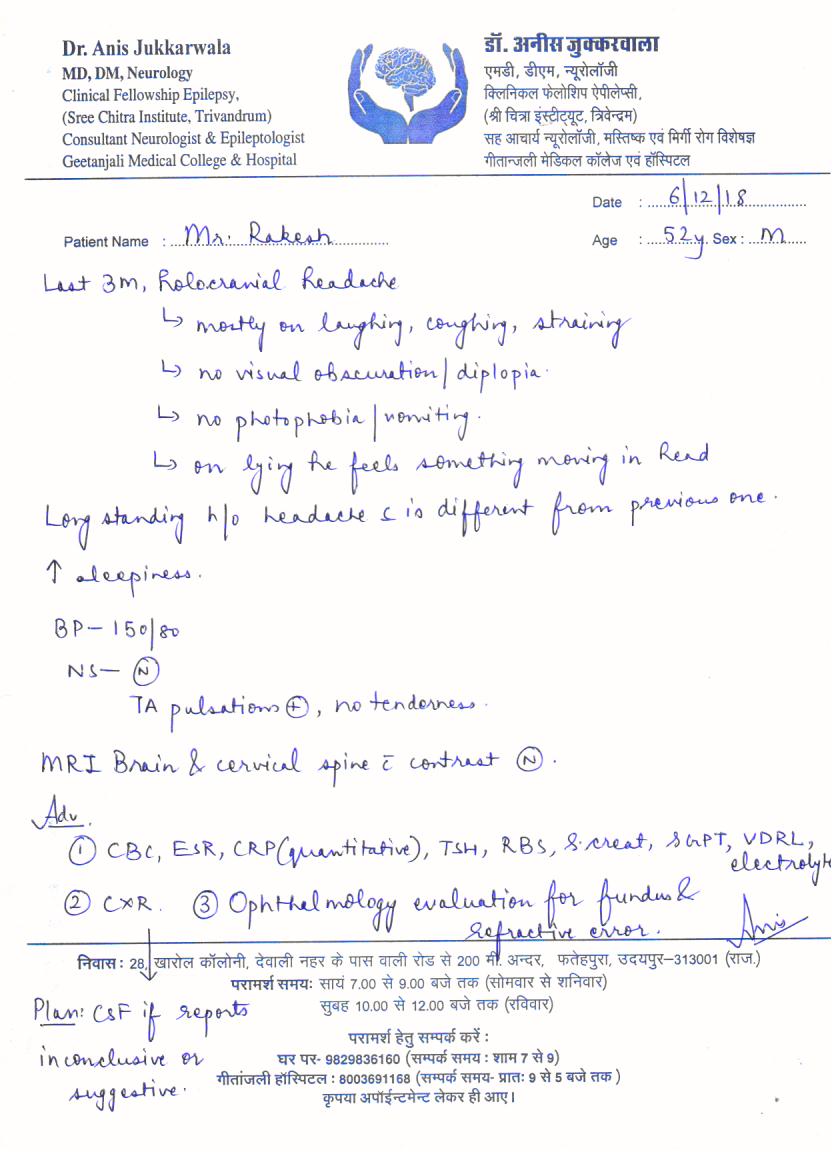 Dr. Anis Jukkarwala
MD, DM, Neurology
Clinical Fellowship Epilepsy,
(Sree Chitra Institute, Trivandrum)
Consultant Neurologist & Epileptologist
Geetanjali Medical College & Hospital
डॉ. अनीस जुक्करवाला
एमडी, डीएम, न्यूरोलॉजी
क्लिनिकल फेलोशिप ऐपीलेप्सी,
(श्री चित्रा इंस्टीट्यूट, त्रिवेन्द्रम)
सह आचार्य न्यूरोलॉजी, मस्तिष्क एवं मिर्गी रोग विशेषज्ञ
गीतान्जली मेडिकल कॉलेज एवं हॉस्पिटल
Date : 6/12/18
Patient Name : Mr. Rakesh
Age : 52y. Sex : M
Last 3m, holocranial headache
↳ mostly on laughing, coughing, straining
↳ no visual obscuration/diplopia.
↳ no photophobia/vomiting.
↳ on lying he feels something moving in head
Long standing h/o headache c is different from previous one.
↑ sleepiness.
BP – 150/80
NS – Ⓝ
TA pulsations ⊕, no tenderness.
MRI Brain & cervical spine c̄ contrast Ⓝ.
Adv.
① CBC, ESR, CRP (quantitative), TSH, RBS, S.creat, SGPT, VDRL,
electrolyte
② CXR. ③ Ophthalmology evaluation for fundus &
refractive error. Anis
निवास : 28, खारोल कॉलोनी, देवाली नहर के पास वाली रोड से 200 मी. अन्दर, फतेहपुरा, उदयपुर–313001 (राज.)
परामर्श समय: सायं 7.00 से 9.00 बजे तक (सोमवार से शनिवार)
सुबह 10.00 से 12.00 बजे तक (रविवार)
Plan: CSF if reports
inconclusive or
suggestive.
परामर्श हेतु सम्पर्क करें :
घर पर- 9829836160 (सम्पर्क समय : शाम 7 से 9)
गीतांजली हॉस्पिटल : 8003691168 (सम्पर्क समय- प्रातः 9 से 5 बजे तक )
कृपया अपॉईन्टमेन्ट लेकर ही आए।